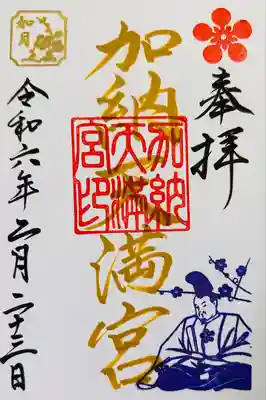 奉拝
加納天満宮
加納
天満
宮印
如月
令和六年二月二十三日